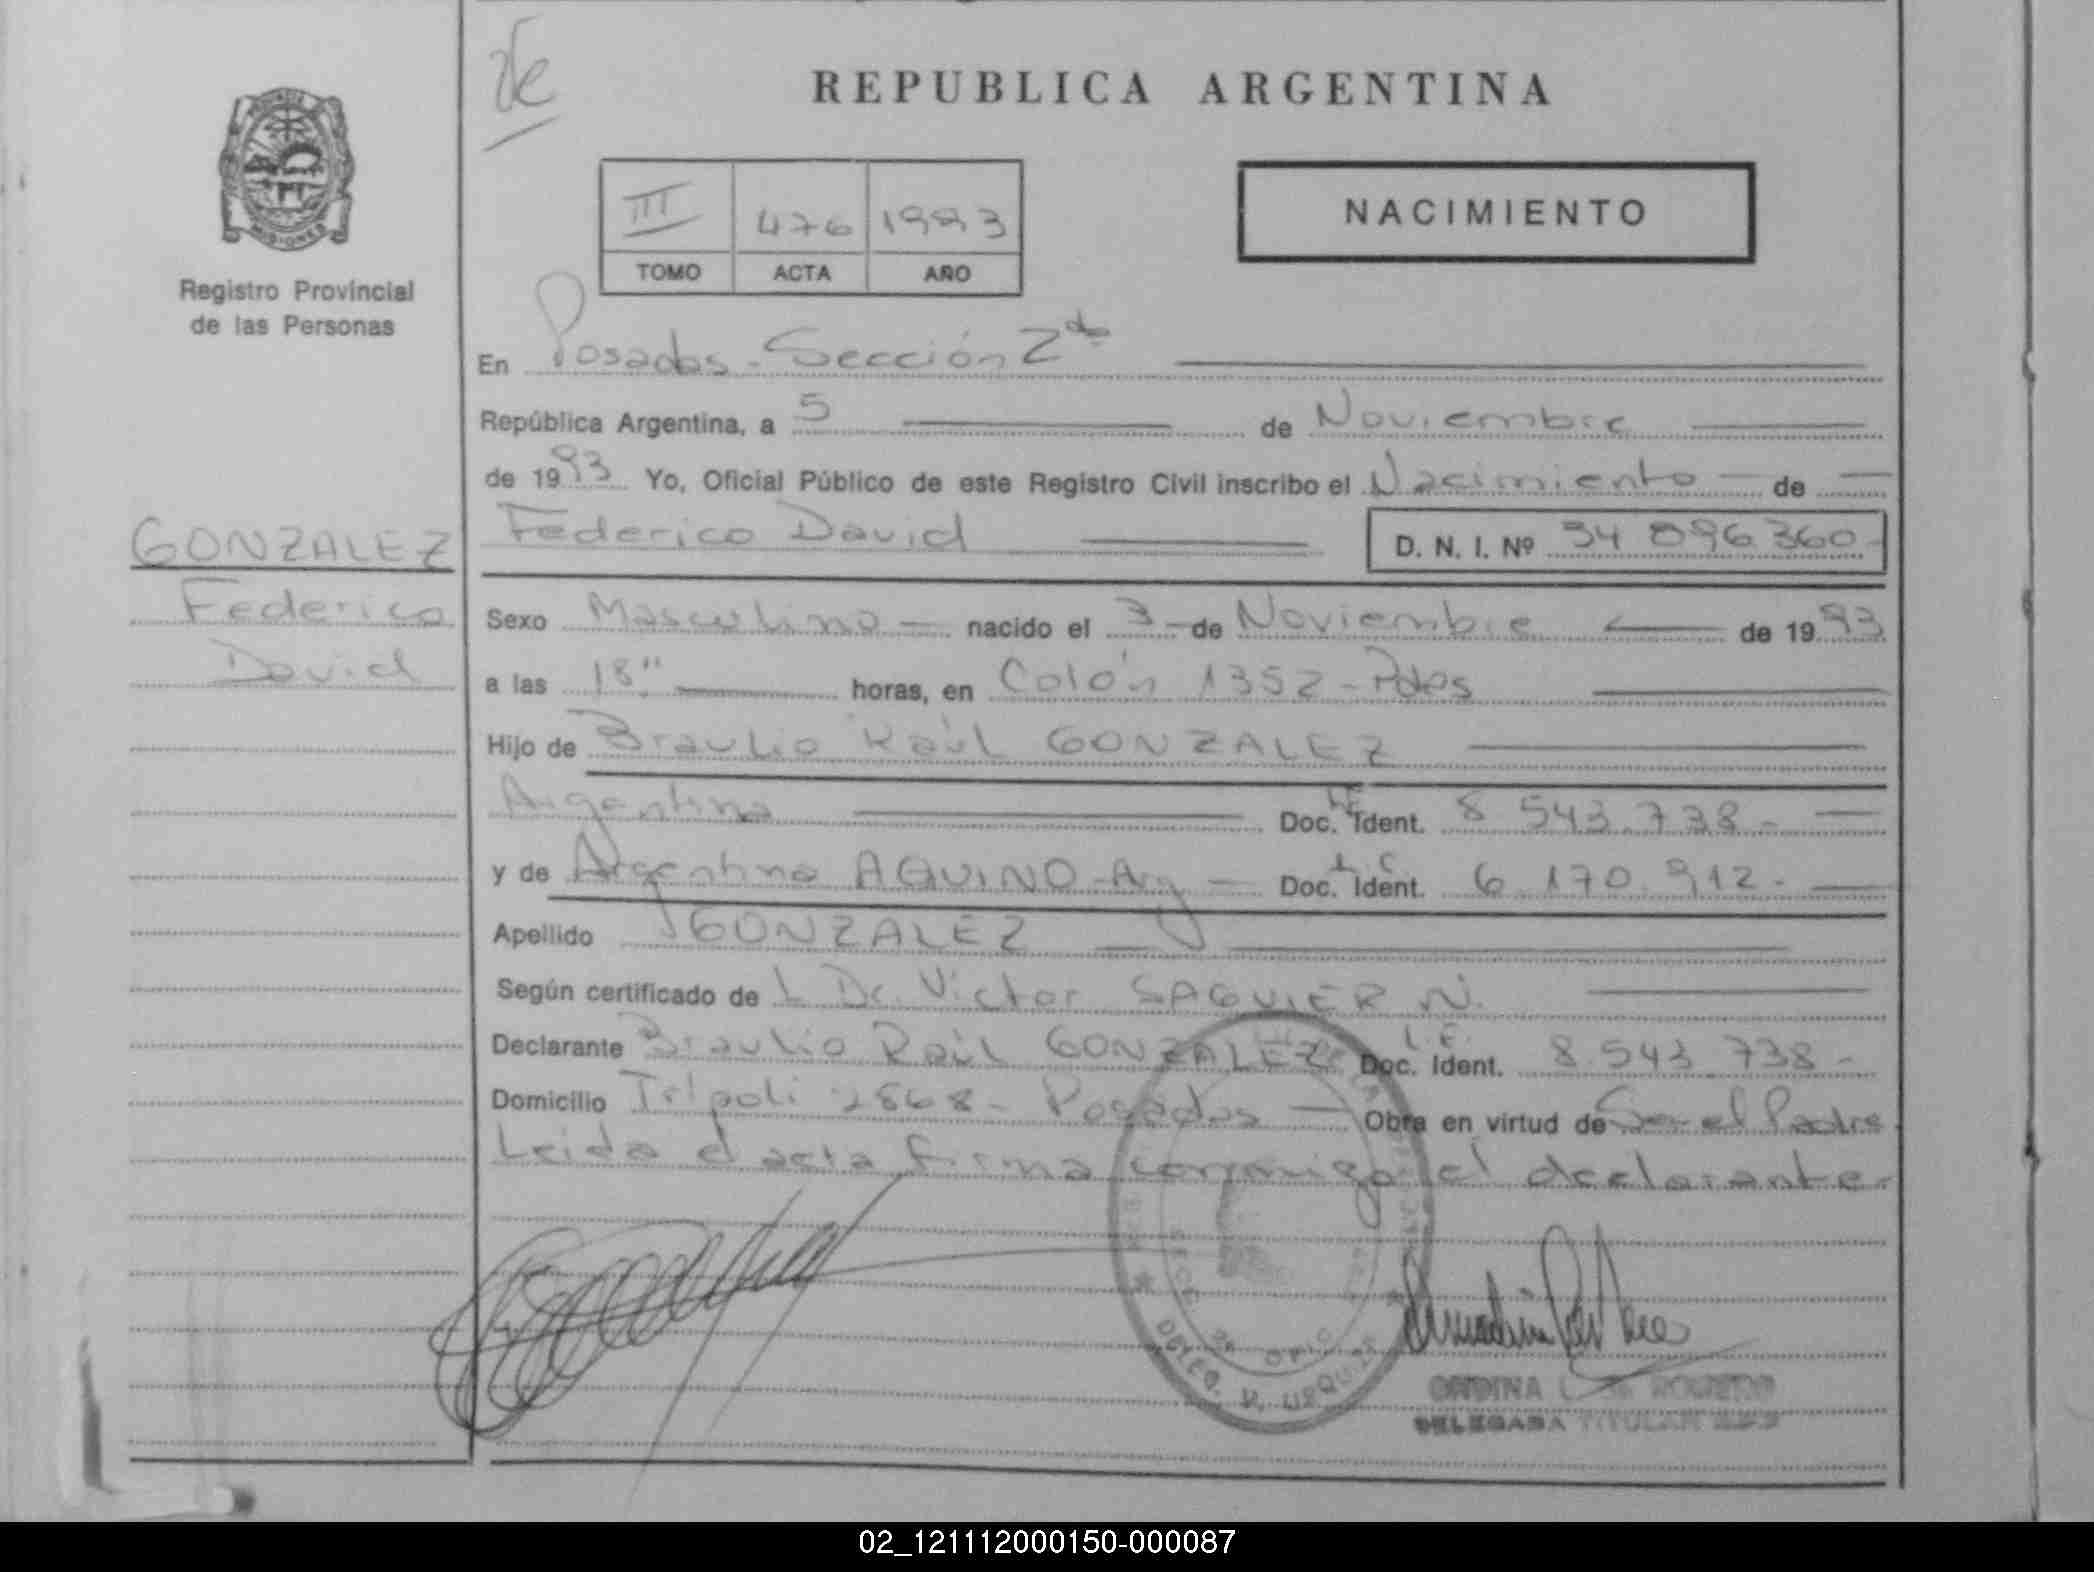 REPUBLICA ARGENTINA
III 476 1993
TOMO ACTA AÑO
NACIMIENTO
MISIONES
Registro Provincial
de las Personas
GONZALEZ
Federico
David
En Posadas - Sección 2da
República Argentina, a 5 de Noviembre
de 1993 Yo, Oficial Público de este Registro Civil inscribo el Nacimiento de
Federico David D. N. I. Nº 34 096 360
Sexo Masculino nacido el 3 de Noviembre de 1993
a las 18" horas, en Colón 1352 - Pdas
Hijo de Braulio Raúl GONZALEZ
Argentina Doc. Ident. LE 8 543 738 -
y de Argentina AQUINO - Arg Doc. Ident. L.C 6 170 912 -
Apellido GONZALEZ
Según certificado de L Dr. Victor SAGUIER N.
Declarante Braulio Raúl GONZALEZ Doc. Ident. L.E. 8 543 738 -
Domicilio Trípoli 2868 - Posadas Obra en virtud de Ser el Padre
Leida el acta firma conmigo el declarante
DELEG. V. URQUIZA
DELEGADA TITULAR
02_121112000150-000087